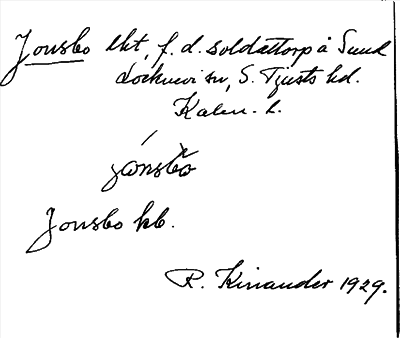 Jonsbo lht, f. d. soldattorp å Sund
Lofta sn, S. Tjusts hd.
Kalm. l.
jonsbo
Jonsbo kb.
R. Kinander 1929.